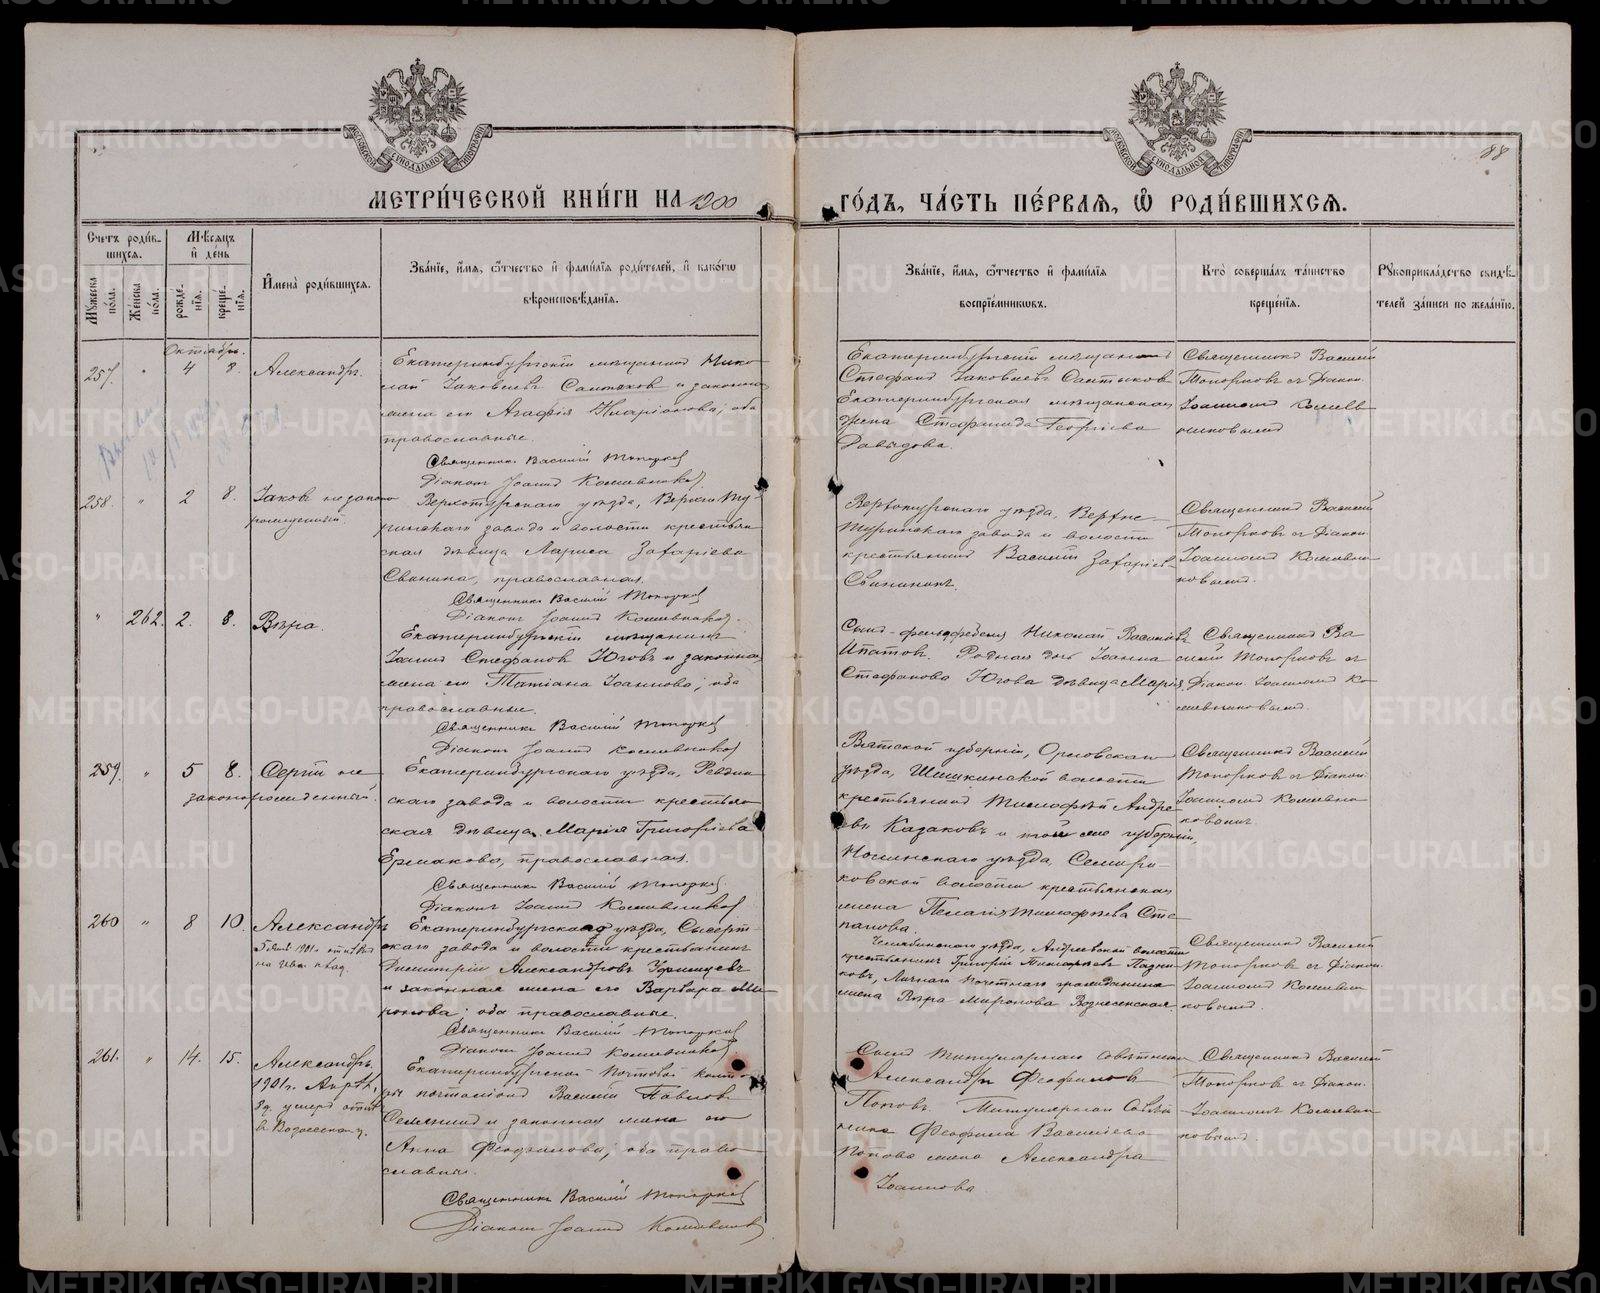 88
МЕТРИ́ЧЕСКОЙ КНИ́ГИ НА 1900 ГО́ДЪ, ЧА́СТЬ ПЕ́РВАЯ, Ѿ РОДИ́ВШИХСЯ.
Счетъ роди́в-
шихся.
Мѣ́сяцъ
и҆ де́нь
Мꙋ́жеска по́ла.
Же́нска по́ла.
рожде-нїѧ.
креще-нїѧ.
И҆мена̀ роди́вшихся.
Зва́нїе, и҆́мѧ, ѻ҆́тчество и҆ фами́лїѧ роди́телей, и҆ како́гѡ
вѣроисповѣ́данїѧ.
Зва́нїе, и҆́мѧ, ѻ҆́тчество и҆ фами́лїѧ
воспрїе́мникѡвъ.
Кто̀ соверша́лъ та́инство
креще́нїѧ.
Рꙋкоприкла́дство свидѣ́-
телей за́писи по жела́нїю.
Октябрь.
257. " 4 8. Александръ.
Екатеринбургскій мѣщанинъ Нико-
лай Іаковлевъ Салтыков и законна
жена его Агафія Иларіонова; оба
православные.
Священникъ Василій Топорков
Діаконъ Іоаннъ Кошевников
Екатеринбургскій мѣщанинъ
Стефанъ Іаковлевъ Салтыков
Екатеринбургская мѣщанская
жена Стефанида Георгіева
Давыдова.
Священникъ Василій
Топорковъ съ Діакон.
Іоанномъ Кошев-
никовымъ
258. " 2 8. Іаковъ незакон
рожденный.
Верхотурскаго уѣзда, Верхне Ту-
ринскаго завода и волости крестьян
ская дѣвица Лариса Захаріева
Свинина, православная.
Священникъ Василій Топорков
Діаконъ Іоаннъ Кошевников.
Верхотурскаго уѣзда, Верхне-
Туринскаго завода и волости
крестьянинъ Василій Захаріев
Свининъ.
Священникъ Василій
Топорковъ съ Діакон.
Іоанномъ Кошевни
ковымъ.
" 262. 2. 8. Вѣра.
Екатеринбургскій мѣщанинъ
Іоаннъ Стефановъ Юговъ и законна
жена его Татіана Іоаннова; оба
православные.
Священникъ Василій Топорков
Діаконъ Іоаннъ Кошевников
Сынъ фельдфебеля Николай Васильевъ
Ипатовъ. Родная дочь Іоанна
Стефанова Югова дѣвица Марія
Священникъ Ва
силій Топорковъ съ
Діакон. Іоанномъ Ко
шевниковымъ.
259. " 5 8. Сергій не
законорожденный.
Екатеринбургскаго уѣзда, Ревдин
скаго завода и волости крестьян
ская дѣвица Марія Григоріева
Ермакова, православная.
Священникъ Василій Топорков.
Діаконъ Іоаннъ Кошевников
Вятской губерніи, Орловскаго
уѣзда, Шешкинской волости
крестьянинъ Тимофѣй Андре-
евъ Казаковъ и той же губерніи,
Нолинскаго уѣзда,
волости крестьянская
жена Пелагія Тимофѣева Сте
панова.
Священникъ Василій
Топорковъ съ Діакон.
Іоанномъ Кошевни
ковымъ.
260 " 8 10. Александръ
на
Екатеринбургскаго уѣзда, Сысерт-
скаго завода и волости крестьянинъ
Димитрій Александровъ
и законная жена его Варвара Ми-
ронова; оба православные.
Священникъ Василій Топорков
Діаконъ Іоаннъ Кошевников
Челябинскаго уѣзда, Андреевской волости
крестьянинъ Григорій
Личнаго почетнаго гражданина
жена Вѣра Миронова Вознесенская.
Священникъ Василій
Топорковъ съ Діакон.
Іоанномъ Кошевни
ковымъ.
261. " 14. 15. Александръ.
1901 г. Апр.
умеръ
въ
Екатеринбургской Почтовой конто-
ры почталіонъ Василій Павловъ
и законная жена его
Анна Феофанова; оба право
славные.
Священникъ Василій Топорков
Діаконъ Іоаннъ Кошевников
Сынъ титулярнаго совѣтника
Александръ Феофиловъ
Поповъ. Титулярнаго Совѣт
ника Феофила Василіева
Попова жена Александра
Іоаннова
Священникъ Василій
Топорковъ съ Діакон.
Іоанномъ Кошевни
ковымъ.
METRIKI.GASO-URAL.RU